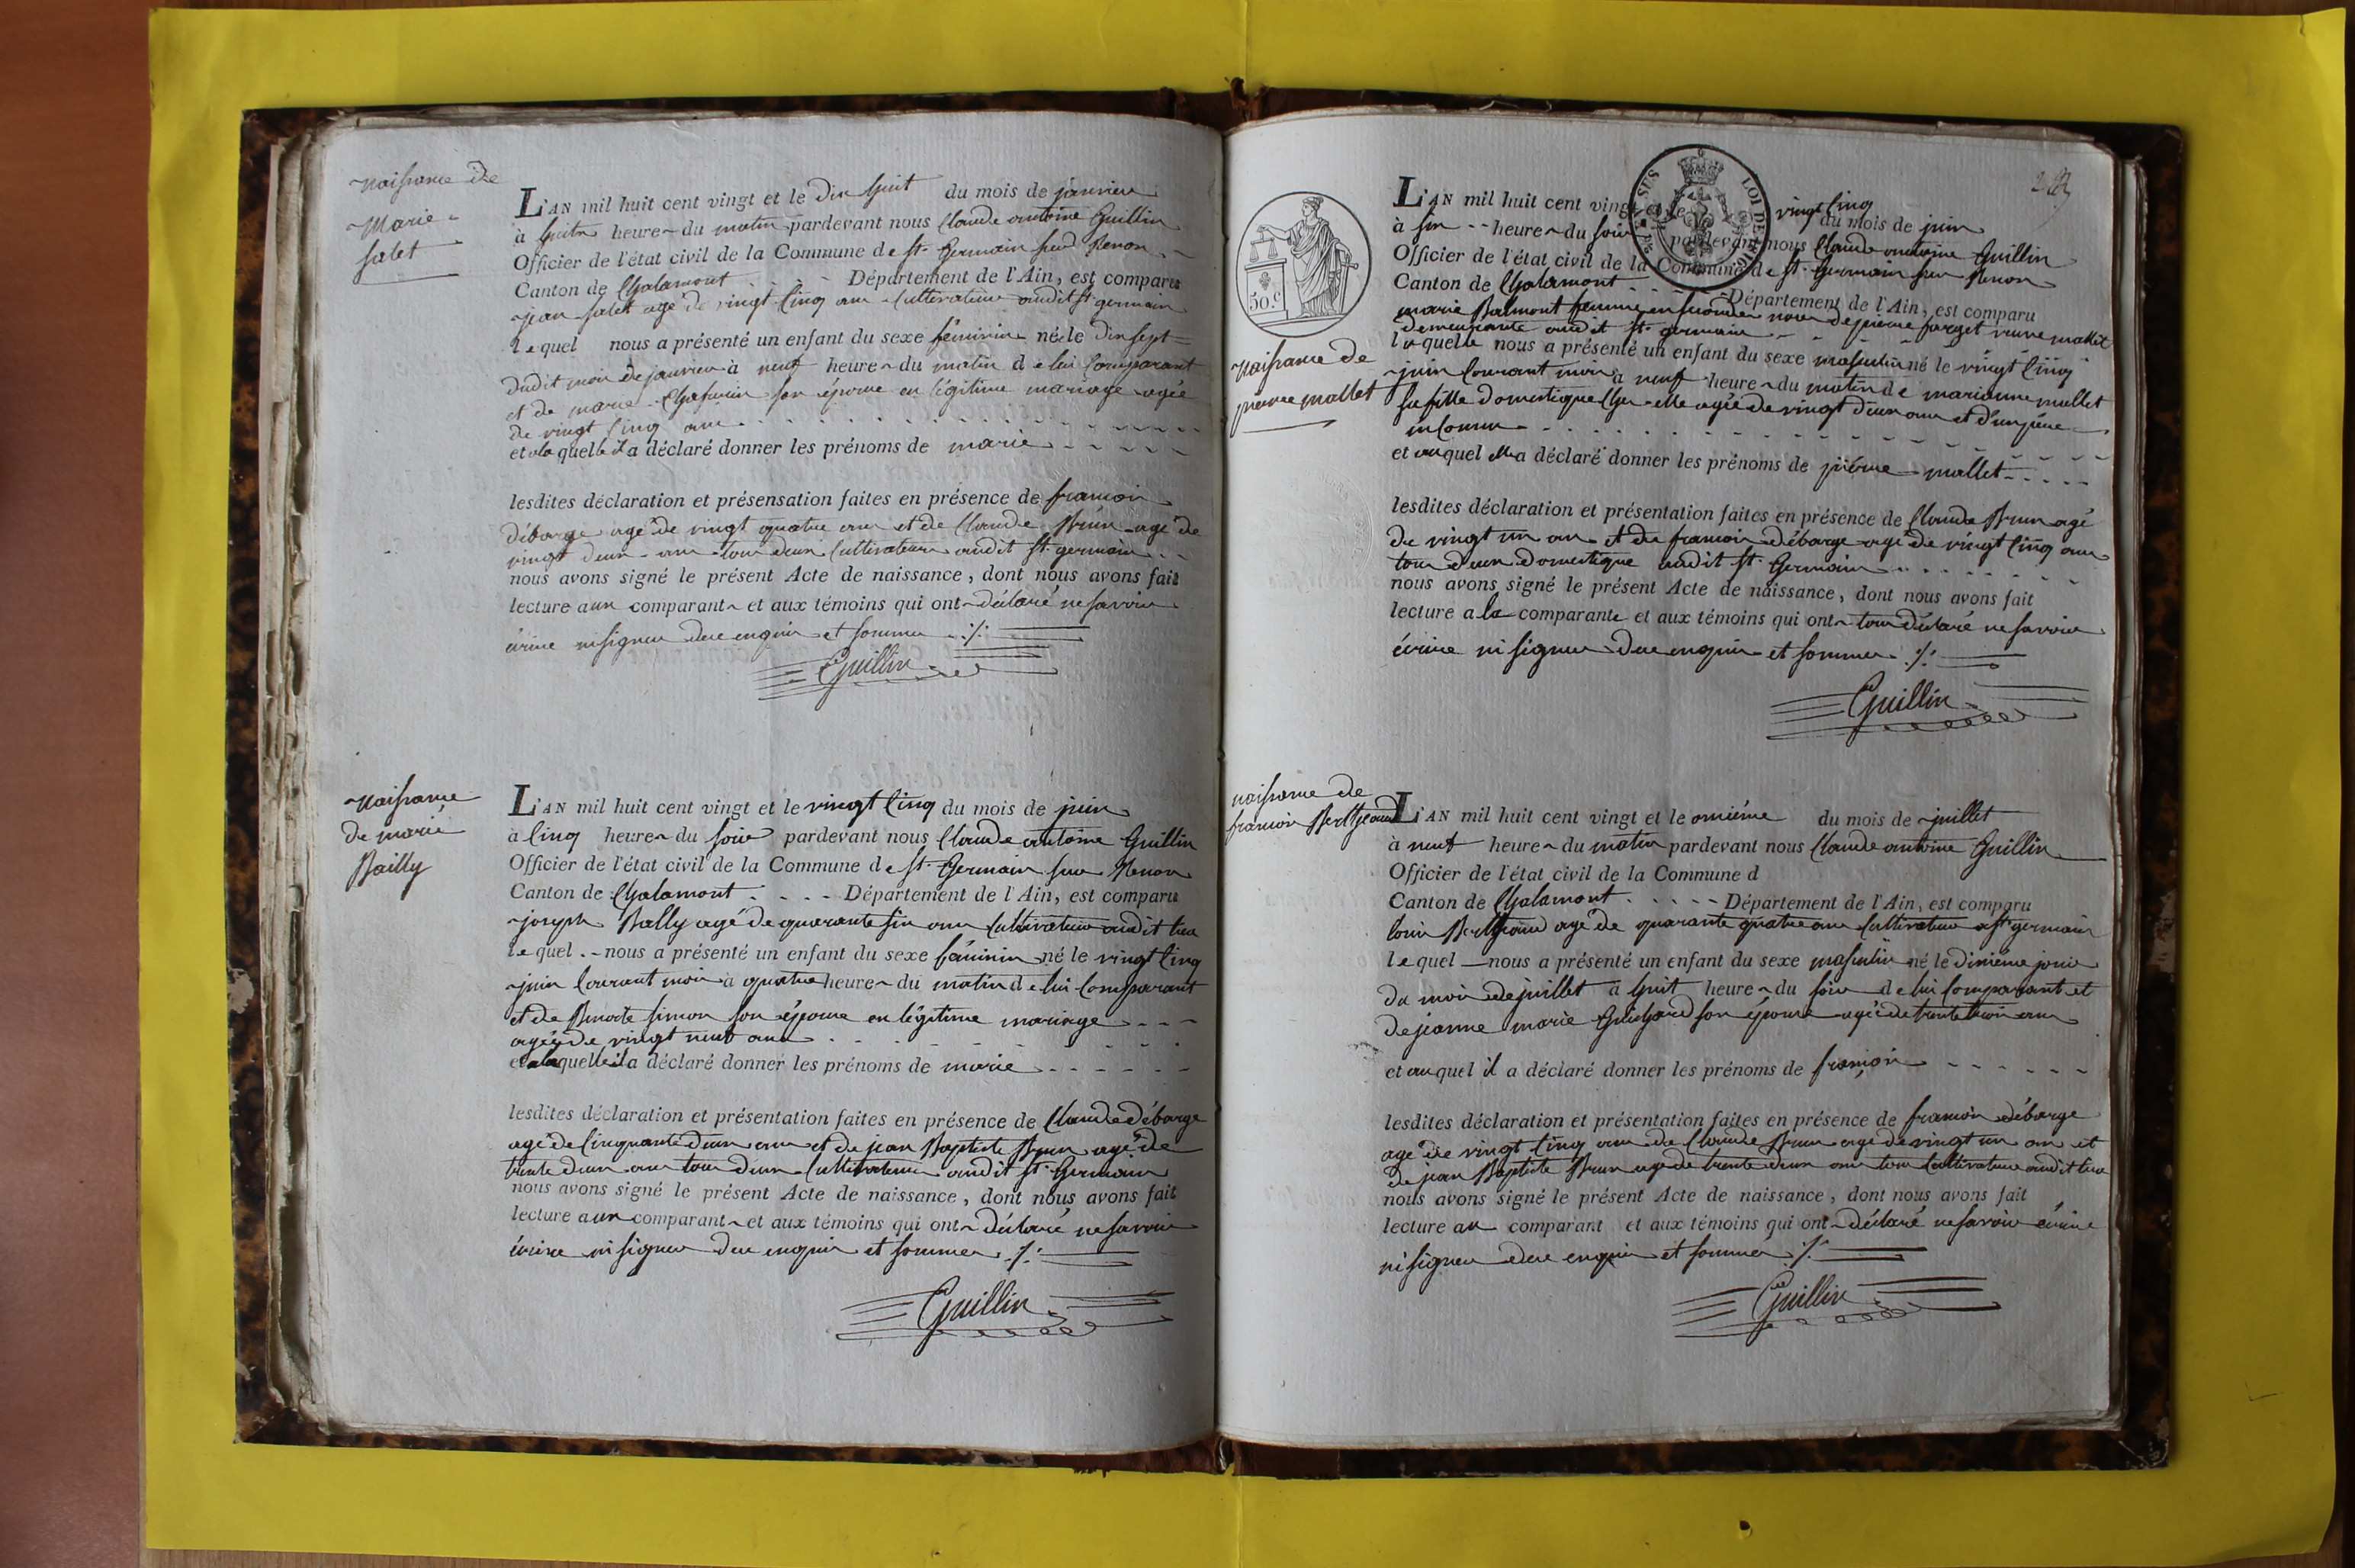 naissance de
Marie
salet
L'AN mil huit cent vingt et le dix huit du mois de janvier
à huit heures du matin pardevant nous Claude antoine Guillin
Officier de l'état civil de la Commune de St. Germain sur Renon
Canton de Chalamont Département de l'Ain, est comparu
jean salet agé de vingt cinq ans cultivateur audit st germain
lequel nous a présenté un enfant du sexe féminin né le dix sept
dudit mois de janvier à neuf heures du matin de lui comparant
et de marie son épouse en légitime mariage agée
de vingt cinq ans
et a laquelle il a déclaré donner les prénoms de marie
lesdites déclaration et présensation faites en présence de francois
débarge agé de vingt quatre ans et de Claude Brun agé de
vingt deux ans tous deux cultivateurs audit st. germain
nous avons signé le présent Acte de naissance, dont nous avons fait
lecture aux comparants et aux témoins qui ont déclaré ne savoir
écrire ni signer de ce enquis et sommés
Guillin
naissance
de marie
Bailly
L'AN mil huit cent vingt et le vingt cinq du mois de juin
à cinq heures du soir pardevant nous Claude antoine Guillin
Officier de l'état civil de la Commune de St. Germain sur Renon
Canton de Chalamont Département de l'Ain, est comparu
joseph Bally agé de quarante six ans cultivateur audit lieu
lequel nous a présenté un enfant du sexe féminin né le vingt cinq
juin courant mois à quatre heures du matin de lui comparant
et de Benoite simon son épouse en légitime mariage
agée de vingt neuf ans
et a laquelle il a déclaré donner les prénoms de marie
lesdites déclaration et présentation faites en présence de Claude débarge
agé de cinquante deux ans et de jean Baptiste Brun agé de
trente deux ans tous deux cultivateurs audit st. Germain
nous avons signé le présent Acte de naissance, dont nous avons fait
lecture aux comparants et aux témoins qui ont déclaré ne savoir
écrire ni signer de ce enquis et sommés
Guillin
50. c
naissance de
pierre mallet
L'AN mil huit cent vingt et le vingt cinq du mois de juin
à six heures du soir pardevant nous Claude antoine Guillin
Officier de l'état civil de la Commune de St. Germain sur Renon
Canton de Chalamont Département de l'Ain, est comparu
marie Balmont femme en secondes noces de pierre farget veuve mallet
demeurante audit st. germain
laquelle nous a présenté un enfant du sexe masculin né le vingt cinq
juin courant mois à neuf heures du matin de marianne mallet
sa fille domestique chez elle agée de vingt deux ans et d'un père
inconnu
et auquel elle a déclaré donner les prénoms de pierre mallet
lesdites déclaration et présentation faites en présence de Claude Brun agé
de vingt un ans et de francois débarge agé de vingt cinq ans
tous deux domestique audit st. Germain
nous avons signé le présent Acte de naissance, dont nous avons fait
lecture a la comparante et aux témoins qui ont tous déclaré ne savoir
écrire ni signer de ce enquis et sommés
Guillin
naissance de
francois Berthjeaud
L'AN mil huit cent vingt et le onzième du mois de juillet
à neuf heures du matin pardevant nous Claude antoine Guillin
Officier de l'état civil de la Commune d
Canton de Chalamont Département de l'Ain, est comparu
louis agé de quarante quatre ans cultivateur a st germain
lequel nous a présenté un enfant du sexe masculin né le dixième jour
du mois de juillet à huit heures du soir de lui comparant et
de jeanne marie Guichard son épouse agée de trente trois ans
et auquel il a déclaré donner les prénoms de françois
lesdites déclaration et présentation faites en présence de francois débarge
agé de vingt cinq ans de Claude Brun agé de vingt un ans et
de jean Baptiste Brun agé de trente deux ans tous cultivateurs audit lieu
nous avons signé le présent Acte de naissance, dont nous avons fait
lecture au comparant et aux témoins qui ont déclaré ne savoir écrire
ni signer de ce enquis et sommés
Guillin